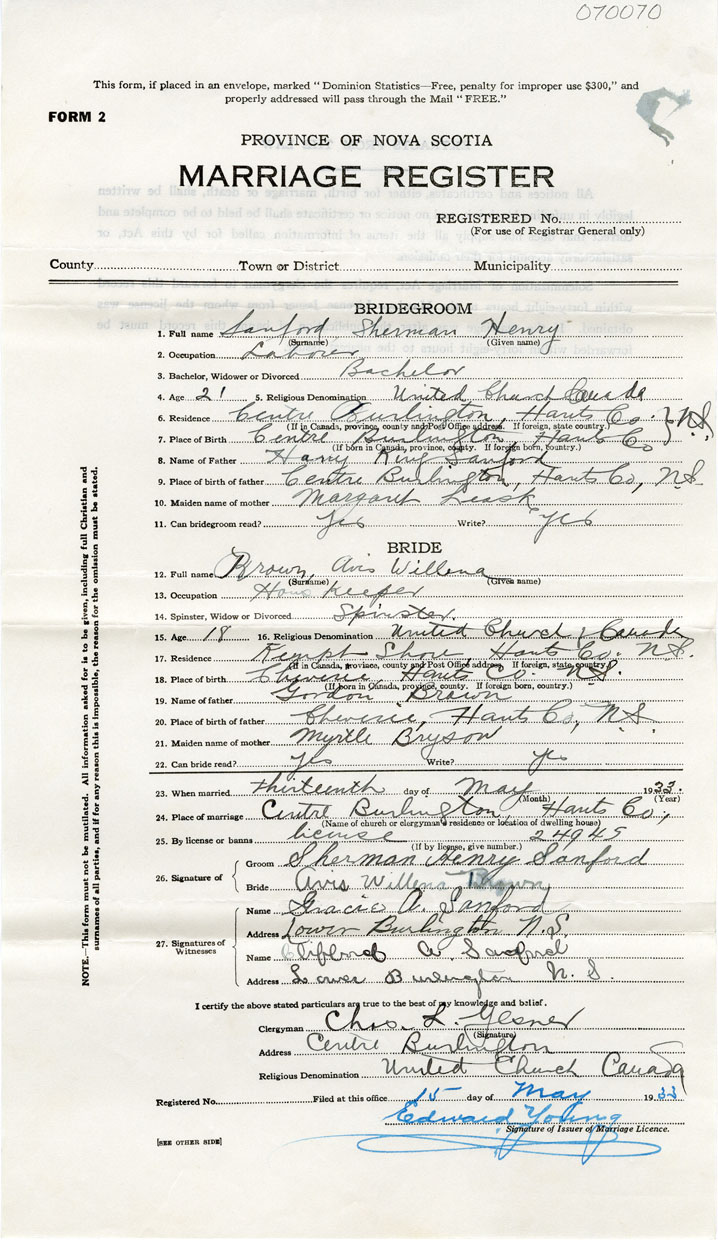 070070
This form, if placed in an envelope, marked "Dominion Statistics—Free, penalty for improper use $300," and
properly addressed will pass through the Mail "FREE."
FORM 2
PROVINCE OF NOVA SCOTIA
MARRIAGE REGISTER
REGISTERED No.
(For use of Registrar General only)
County Town or District Municipality
BRIDEGROOM
1. Full name Sanford Sherman Henry
(Surname) (Given name)
2. Occupation Laborer
3. Bachelor, Widower or Divorced Bachelor
4. Age 21 5. Religious Denomination United Church Canada
6. Residence Centre Burlington, Hants Co. } N.S.
(If in Canada, province, county and Post Office address. If foreign, state country.)
7. Place of Birth Centre Burlington, Hants Co
(If born in Canada, province, county. If foreign born, country.)
8. Name of Father Harry King Sanford
9. Place of birth of father Centre Burlington, Hants Co, N.S.
10. Maiden name of mother Margaret Leask
11. Can bridegroom read? Yes Write? Yes
BRIDE
12. Full name Brown, Avis Willena
(Surname) (Given name)
13. Occupation House Keeper
14. Spinster, Widow or Divorced Spinster.
15. Age 18 16. Religious Denomination United Church Canada
17. Residence Kempt Shore, Hants Co. N.S.
(If in Canada, province, county and Post Office address. If foreign, state country)
18. Place of birth Cheverie, Hants Co. N.S.
(If born in Canada, province, county. If foreign born, country.)
19. Name of father Gordon Brown
20. Place of birth of father Cheverie, Hants Co, N.S.
21. Maiden name of mother Myrtle Bryson
22. Can bride read? Yes Write? Yes
23. When married thirteenth day of May 1933.
(Month) (Year)
24. Place of marriage Centre Burlington, Hants Co,
(Name of church or clergyman's residence or location of dwelling house)
25. By license or banns license 24945
(If by license, give number.)
26. Signature of
Groom Sherman Henry Sanford
Bride Avis Willena Brown
27. Signatures of Witnesses
Name Gracie A. Sanford
Address Lower Burlington N.S.
Name Clifford W Sanford
Address Lower Burlington N. S.
I certify the above stated particulars are true to the best of my knowledge and belief.
Clergyman Chas. L. Gesner
(Signature)
Address Centre Burlington
Religious Denomination United Church Canada
Registered No. Filed at this office 15 day of May 1933
Edward Young
Signature of Issuer of Marriage Licence.
[SEE OTHER SIDE]
NOTE.—This form must not be mutilated. All information asked for is to be given, including full Christian and
surnames of all parties, and if for any reason this is impossible, the reason for the omission must be stated.